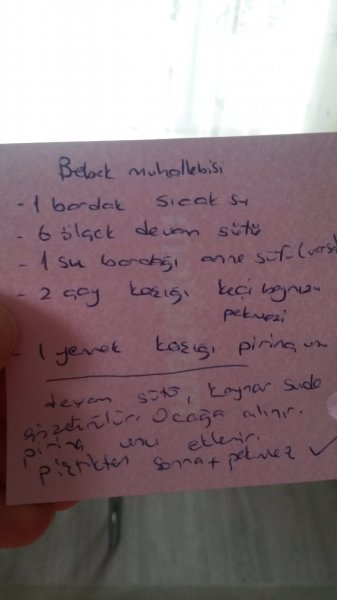 Bebek muhallebisi
- 1 bardak sıcak su
- 6 ölçek devam sütü
- 1 su bardağı anne sütü (varsa
- 2 çay kaşığı keçi boynuzu
pekmezi
- 1 yemek kaşığı pirinç un
devam sütü, kaynar suda
çözdürülür. Ocağa alınır.
pirinç unu eklenir.
piştikten sonra + pekmez ✓